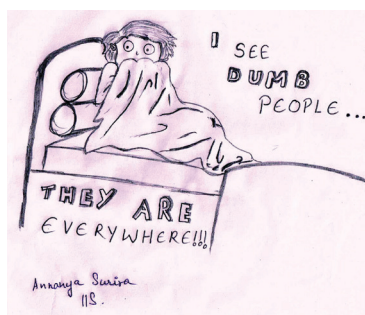 I SEE
DUMB
PEOPLE...
THEY ARE
EVERYWHERE!!!
Annanya Surira
IIS.